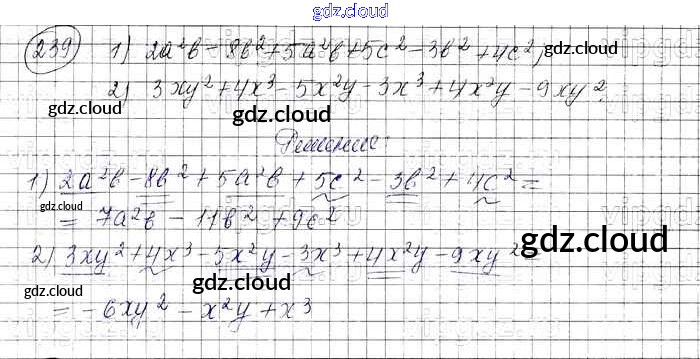 gdz.cloud
239 1) 2a²b - 8b² + 5a²b + 5c² - 3b² + 4c²;
2) 3xy² + 4x³ - 5x²y - 3x³ + 4x²y - 9xy².
gdz.cloud
gdz.cloud
Решение:
1) 2a²b - 8b² + 5a²b + 5c² - 3b² + 4c² =
gdz.cloud
gdz.cloud
= 7a²b - 11b² + 9c²
2) 3xy² + 4x³ - 5x²y - 3x³ + 4x²y - 9xy² =
gdz.cloud
gdz.cloud
gdz.cloud
= -6xy² - x²y + x³